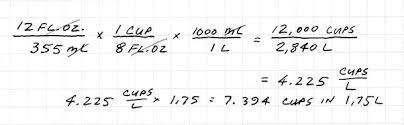 12 FL.OZ. / 355 mL × 1 CUP / 8 FL.OZ × 1000 mL / 1 L = 12,000 CUPS / 2,840 L
= 4.225 CUPS / L
4.225 CUPS / L × 1.75 = 7.394 CUPS IN 1.75L